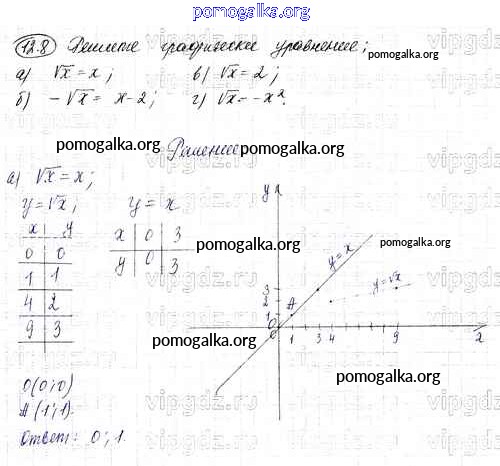 pomogalka.org
12.8 Решите графически уравнение;
pomogalka.org
а) √x = x; в) √x = 2;
б) -√x = x-2; г) √x = -x².
pomogalka.org
vipgdz.ru
pomogalka.org Решение pomogalka.org
а) √x = x;
y = √x; y = x
x | y
0 | 0
1 | 1
4 | 2
9 | 3
x | 0 | 3
y | 0 | 3
pomogalka.org
pomogalka.org
y
y = x
y = √x
3
2
1
A
O
1 3 4 9 x
pomogalka.org
pomogalka.org
O(0;0)
A(1;1).
Ответ: 0; 1.